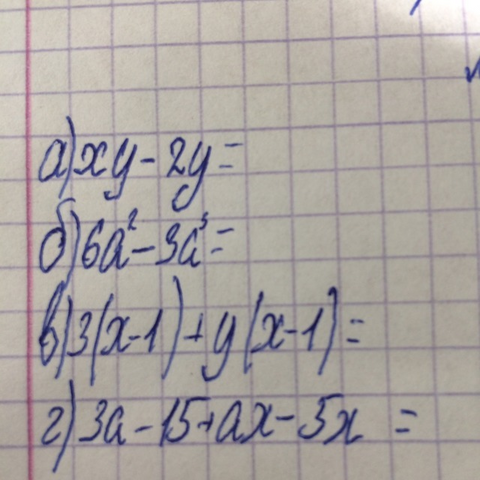 а) xy - 2y =
б) 6a² - 3a³ =
в) 3(x-1) + y(x-1) =
г) 3a - 15 + ax - 5x =